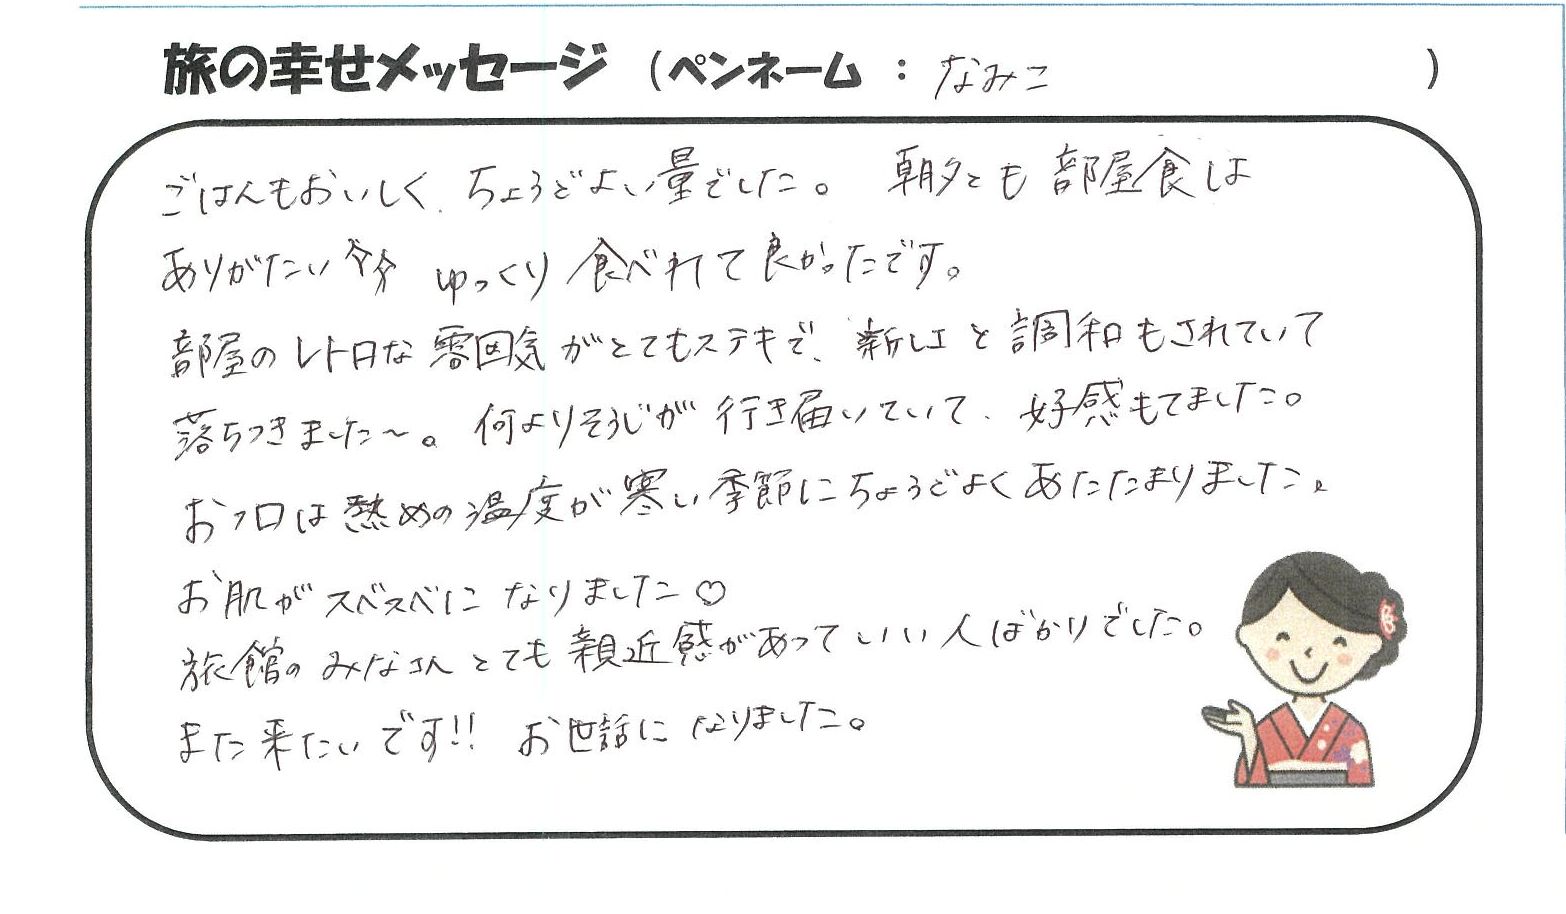 旅の幸せメッセージ (ペンネーム : なみこ )
ごはんもおいしく、ちょうどよい量でした。 朝夕とも部屋食は
ありがたい ゆっくり食べれて良かったです。
部屋のレトロな雰囲気がとてもステキで、新しさと調和もされていて
落ちつきました〜。何よりそうじが行き届いていて、好感もてました。
おフロは熱めの温度が寒い季節にちょうどよくあたたまりました。
お肌がスベスベになりました♡
旅館のみなさんとても親近感があっていい人ばかりでした。
また来たいです!! お世話になりました。